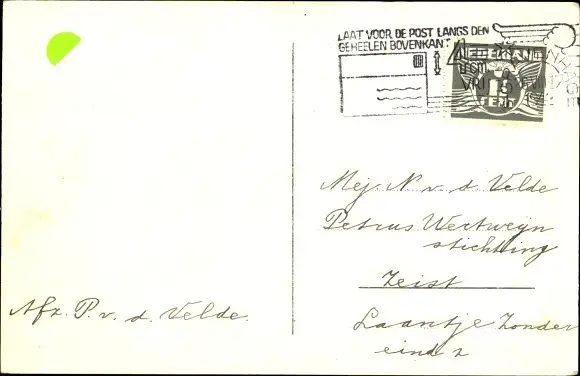 LAAT VOOR DE POST LANGS DEN
GEHEELEN BOVENKANT
NEDERLAND
CENT
Mej. N. v. d. Velde
Petrus Wertweyn
stichting
Zeist
Laantje Zonder
eind 2
Afz. P. v. d. Velde.